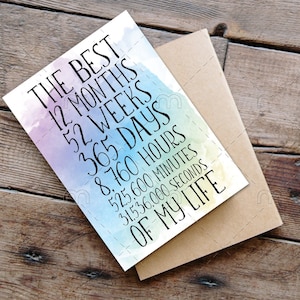 THE BEST
12 MONTHS
52 WEEKS
365 DAYS
8,160 HOURS
525,600 MINUTES
31,536,000 SECONDS
OF MY LIFE